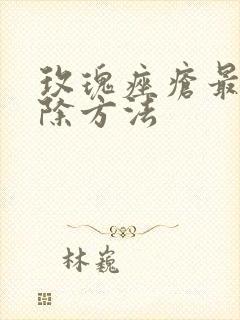 玫瑰痤疮最
除方法
林巍